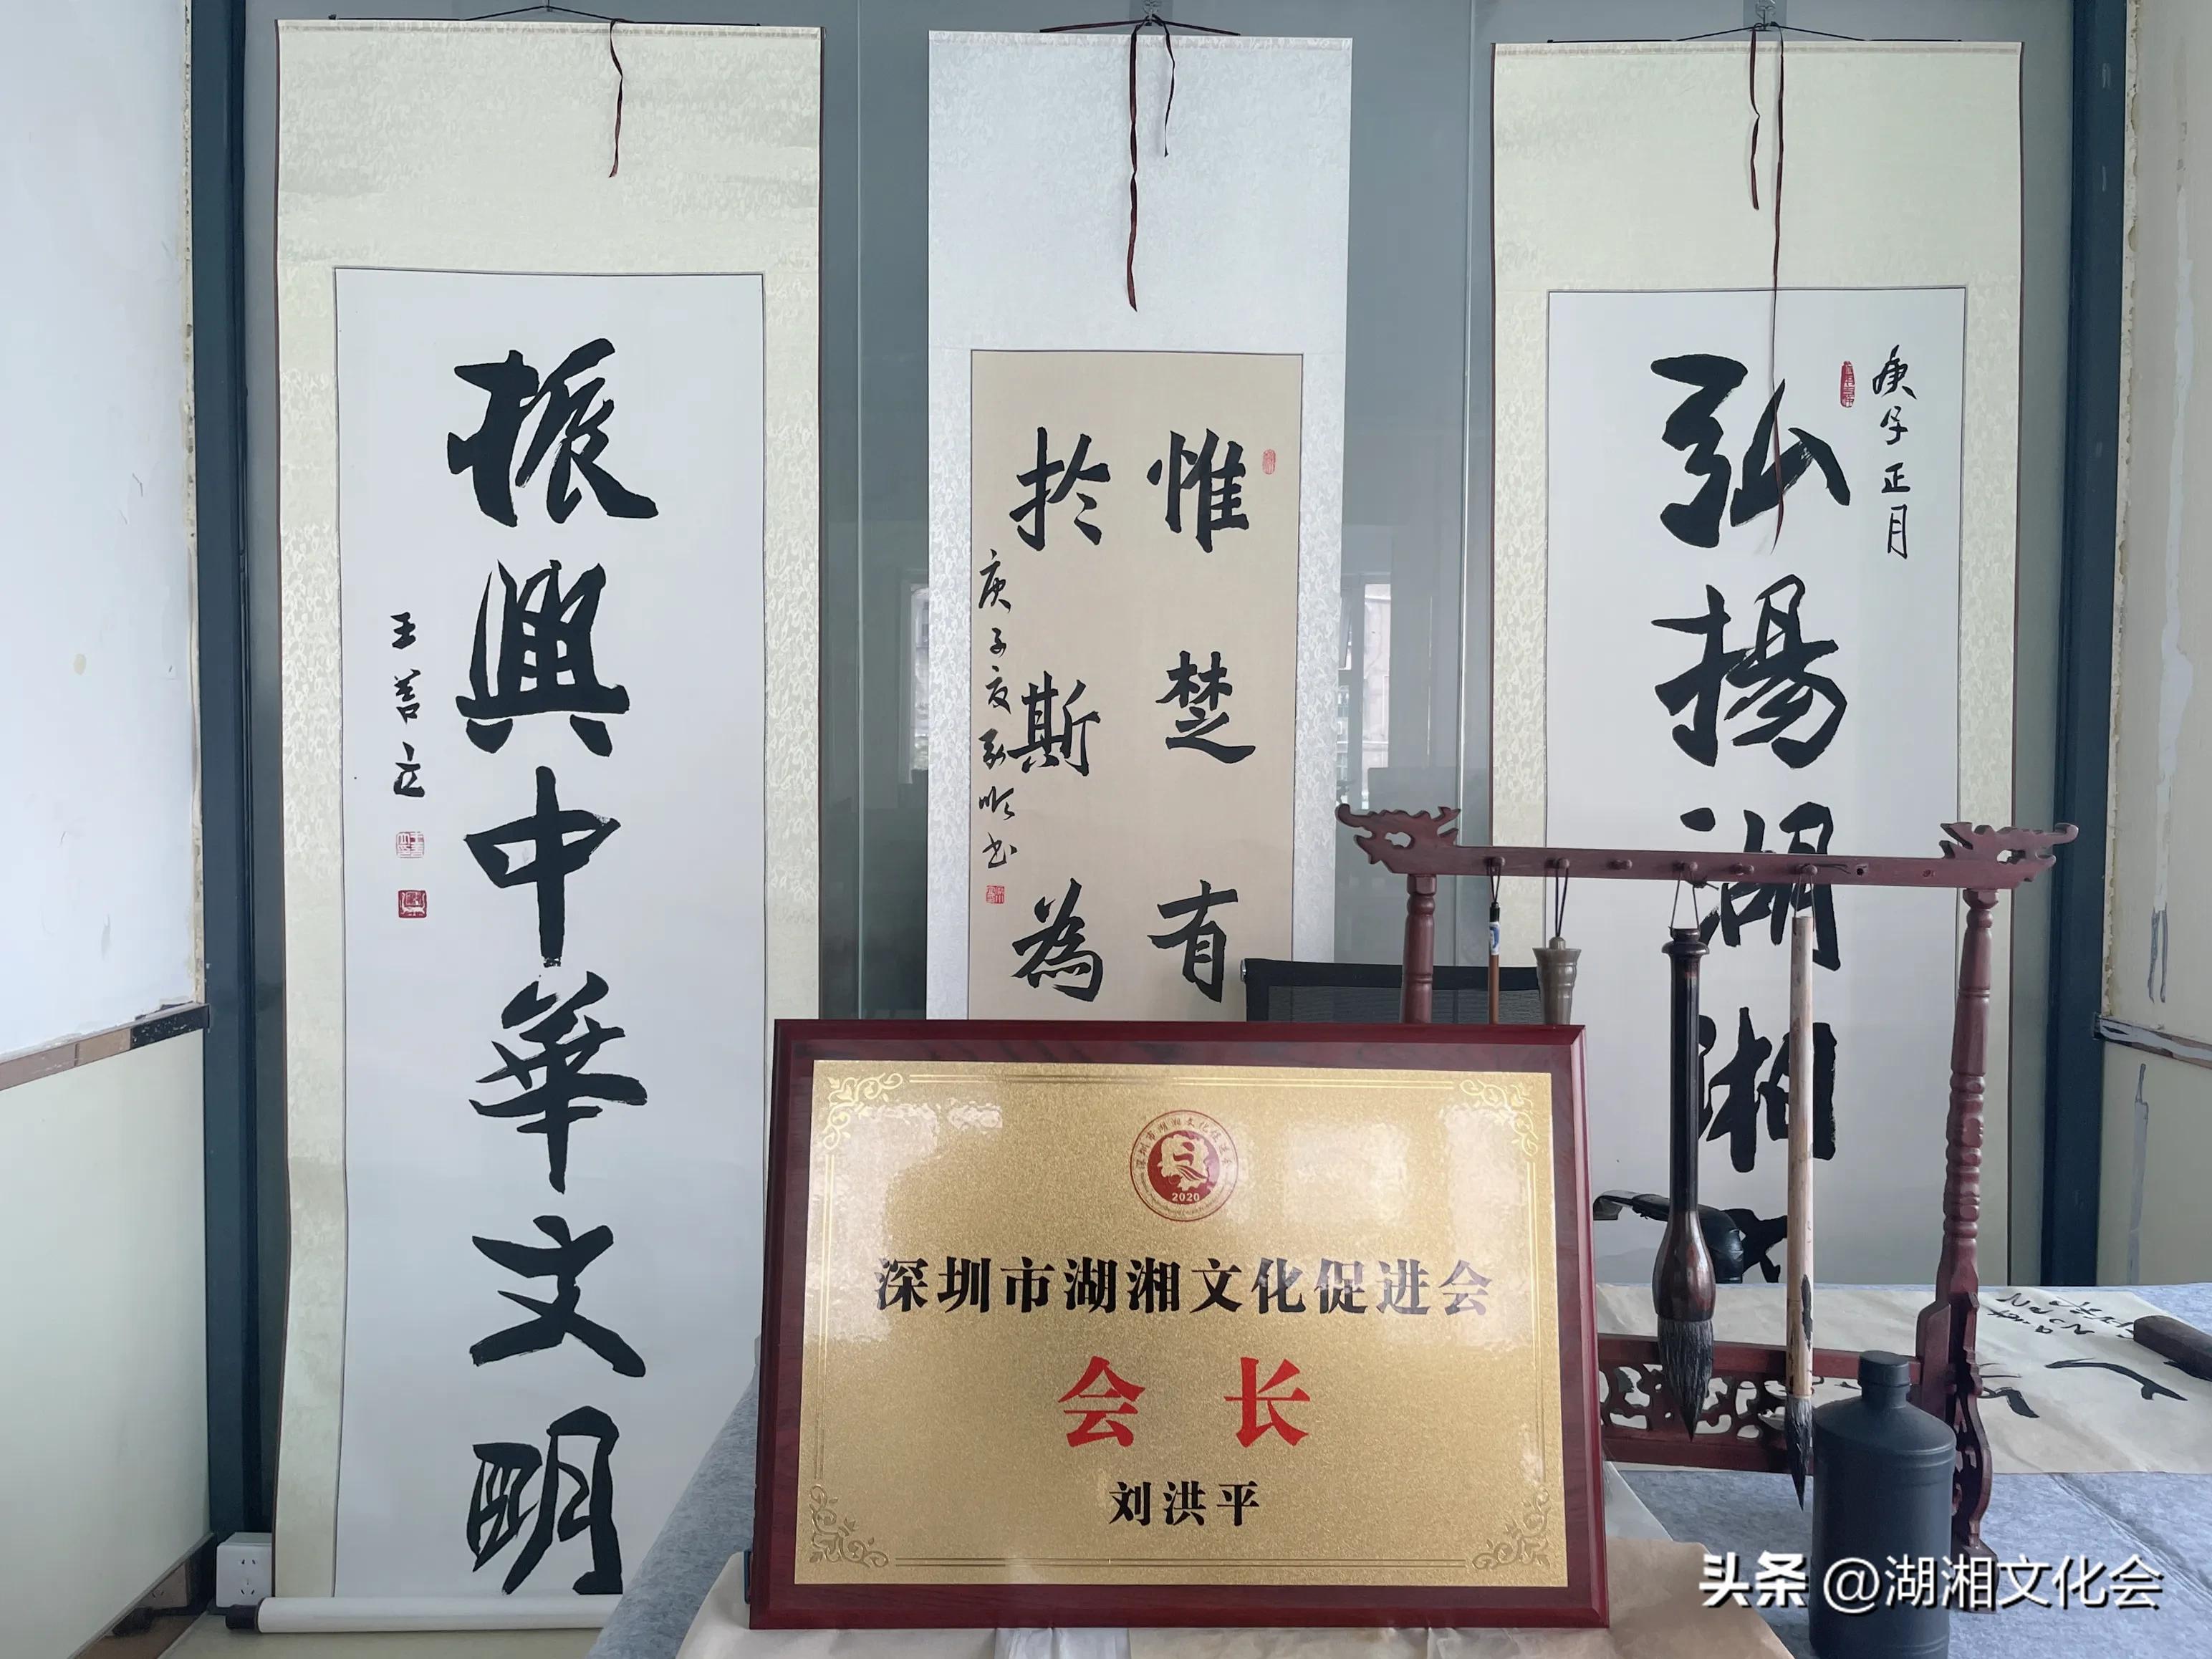 庚子正月
弘揚湖湘文
惟楚有
於斯為
庚子夏
书
振興中華文明
王善
深圳市湖湘文化促进会
2020
深圳市湖湘文化促进会
会长
刘洪平
头条 @湖湘文化会